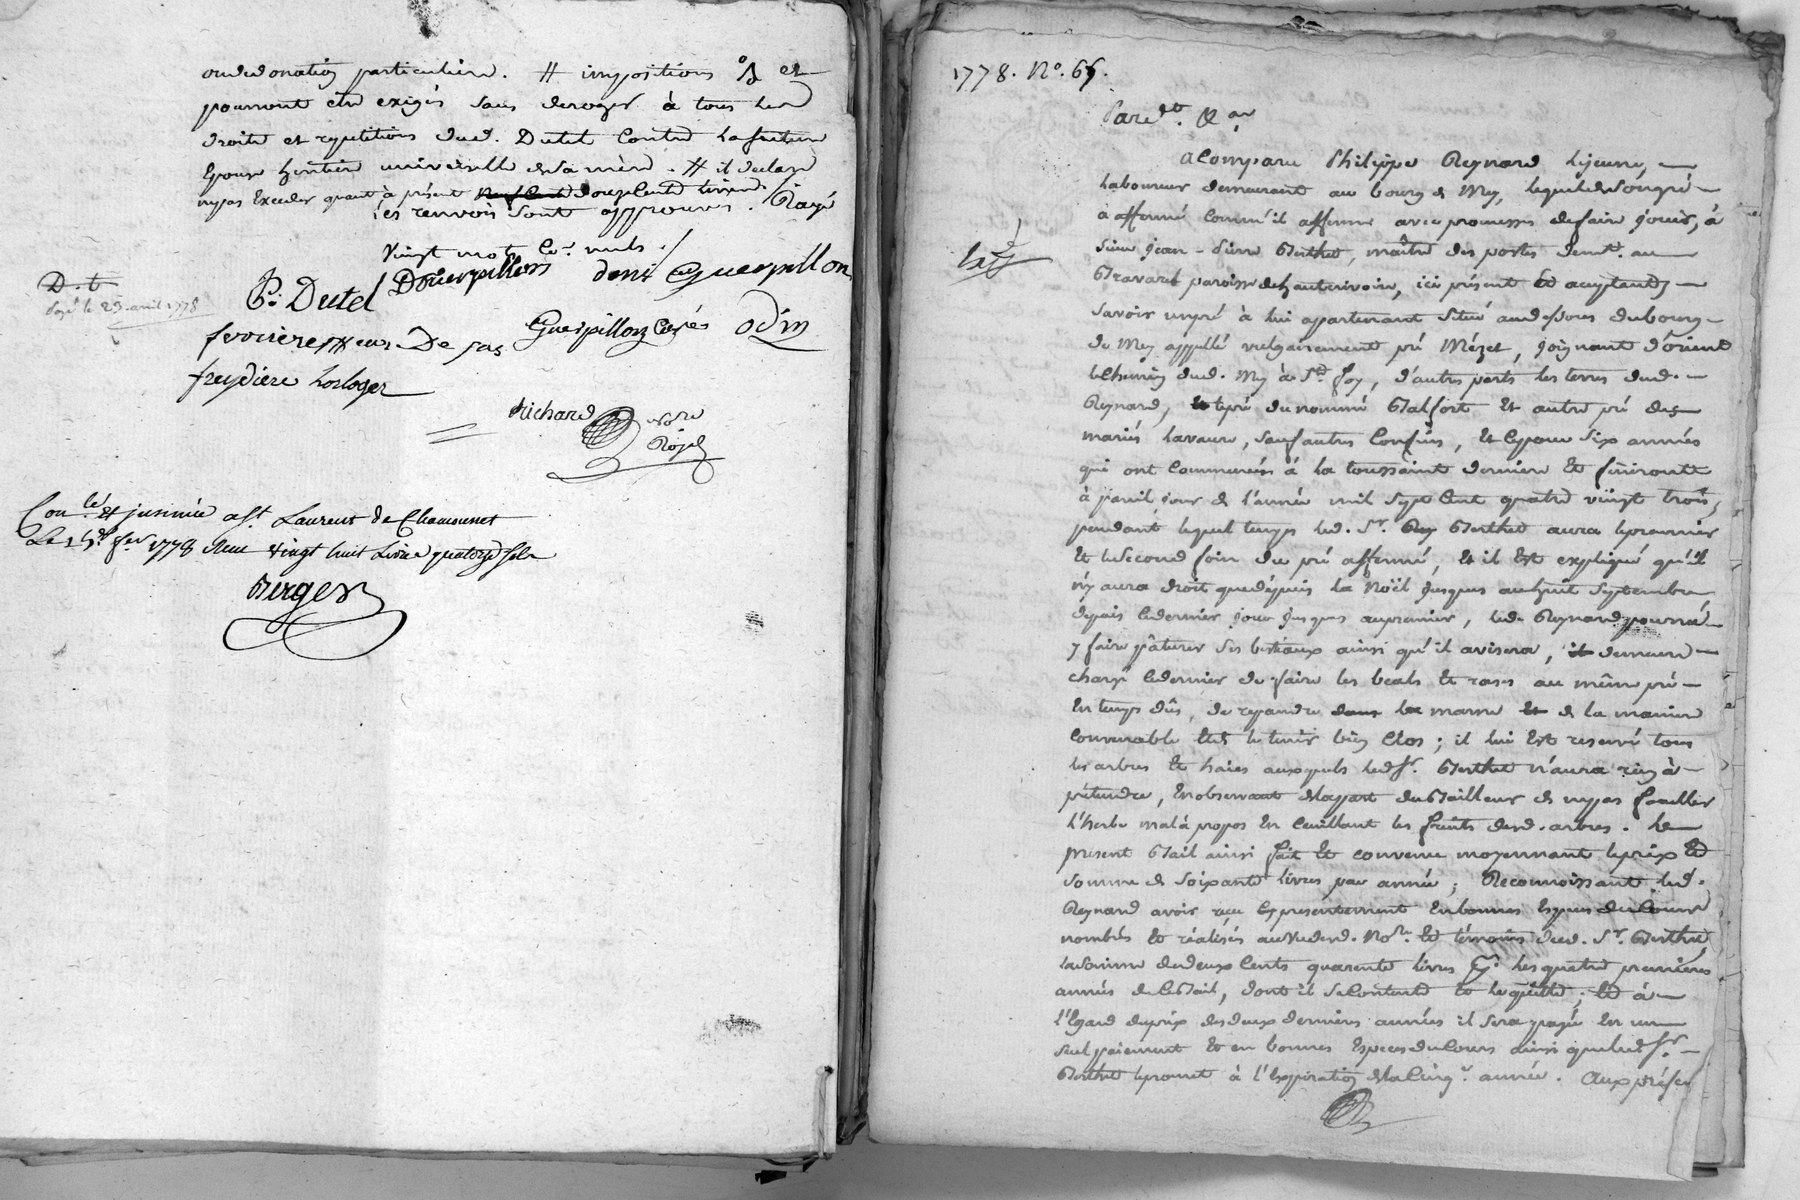 ou donation particuliere. # impositions et
pourront être exigés sans deroger à tous les
droits et repetitions dud. Dutel contre la future
Epouse heritiere universelle de sa mere. # il declare
n'pas Exceder quant à présent douze cents livres. Rayé
les renvois sont approuvés.
vingt mots co. nuls ./.
D. t.
Payé le 25 avril 1778
P. Dutel Dguerpillon deni Guerpillon
De Jas Guerpillon odin
freydiere horloger
Richard no.re
Royal
Con.lé et insinué a St. Laurent de Chamousset
Le 1778 Reçu vingt huit Livres quatorze sols
Berger
1778. No. 65.
Pard.t &a.
a Comparu Philippe Reynard le jeune, —
laboureur demeurant au bourg de Mey, lequel de son gré —
a affermé comm'il afferme avec promesses de faire jouir, à
sieur jean-pierre Berthet, maître des postes demt. au —
Bravard paroisse de hauterivoire, ici présent et acceptant, —
savoir un pré à lui appartenant situé au dessous du bourg —
de Mey appellé vulgairement pré Mézet, joignant d'orient
le chemin dud. Mey à Ste. foy, d'autres parts les terres dud. —
Reynard, le pré du nommé Balfort et autre pré des —
mariés lavaure, sauf autres confins, et ce pour six années
qui ont commencées à la toussaint derniere et finiront
à pareil jour de l'année mil sept cent quatre vingt trois,
pendant lequel temps led. Sr. Berthet aura le premier
et le second foin du pré affermé, et il est expliqué qu'il
n'y aura droit que depuis la Noël jusques au huit septembre
depuis le dernier jour jusques au premier, led. Reynard pourra —
y faire pâturer ses bestiaux ainsi qu'il avisera, demeure —
chargé le dernier de faire les béals et rases au même pré —
en temps dûs, de repandre la marne de la maniere
convenable et de le tenir bien clos ; il lui est reservé tous
les arbres et haies auxquels led. Sr. Berthet n'aura rien à —
prétendre, en observant de la part du Bailleur de ne pas fouller
l'herbe mal à propos en cueillant les fruits desd. arbres. Le
présent Bail ainsi fait et convenu moyennant le prix et
somme de soixante livres par année ; Reconnoissant led.
Reynard avoir reçu cy presentement en bonnes especes du cours
nombrés et réalisés au vu desd. No.re et témoins dud. Sr. Berthet
la somme de deux cents quarente livres p. les quatre premieres
années de ce Bail, dont il se contente et le quitte, et à —
l'égard du prix des deux dernieres années il sera payé en un
seul paiement et en bonnes especes du cours ainsi que led. Sr. —
Berthet le promet à l'expiration de la cinq.e année. Aux présen